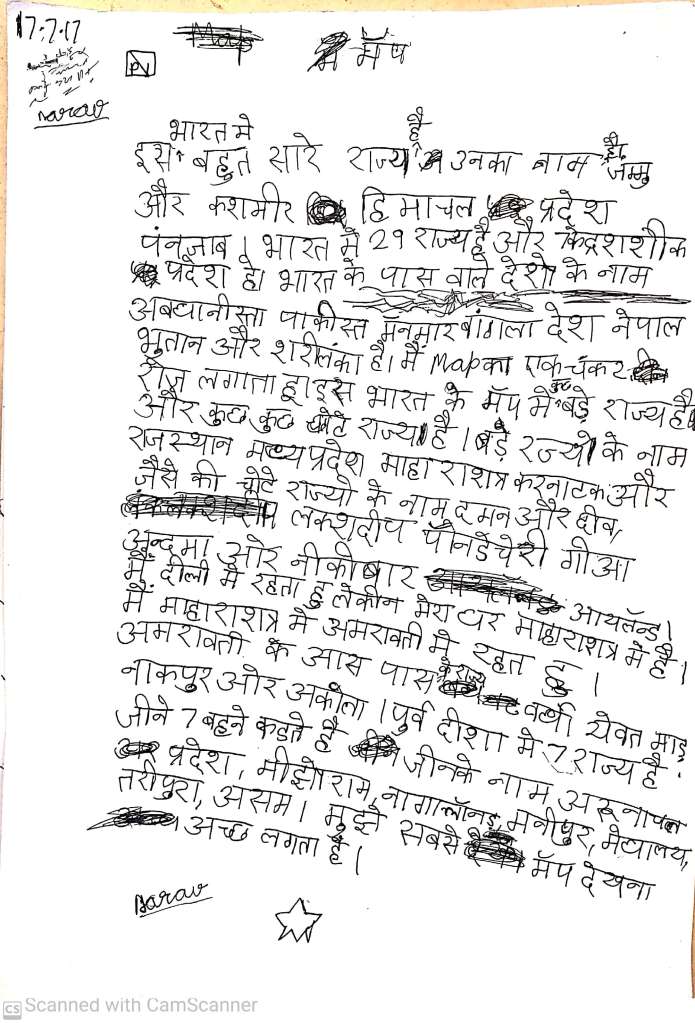 17.7.17
2
मॅप
Narav
भारत मे है
इस बहुत सारे राज्य उनका नाम है। जम्मु
और कशमीर हिमाचल प्रदेश
पंनजाब । भारत में 29 राज्य है और केंद्रशशीक
प्रदेश है। भारत के पास वाले देशो के नाम
अबघानीस्ता पाकीस्त मनमार बांगला देश नेपाल
भुतान और शरीलंका है। मैं Map का एक चंकर
रोज लगाता हू। इस भारत के मॅप मे कुछ बड़े राज्य है।
और कुछ कुछ छोटे राज्य है । बड़े रज्यो के नाम
राजस्थान मध्यप्रदेश माहाराशत्र करनाटक और
जैसे की छोटे राज्यो के नाम दमन और दीव,
लकशदीप पॉनडेचेरी गोआ
अन्दमा ओर नीकोबार आयलॅन्ड।
मैं दीली मे रहता हु लेकीन मेरा घर माहाराशत्र मे है।
मैं माहाराशत्र मे अमरावती मे रहत हु ।
अमरावती के आस पास के राज्य वर्धा येवत माह
नाकपुर और अकोला । पुर्व दीशा मे 7 राज्य है
जीने 7 बहने कहते है जीनके नाम अरूनाचल
प्रदेश, मीझोराम, नागालॅनड, मनीपुर, मेघालय,
तरीपुरा, असम। मुझे सबसे मॅप देखना
अच्छ लगता है।
Narav
CS Scanned with CamScanner